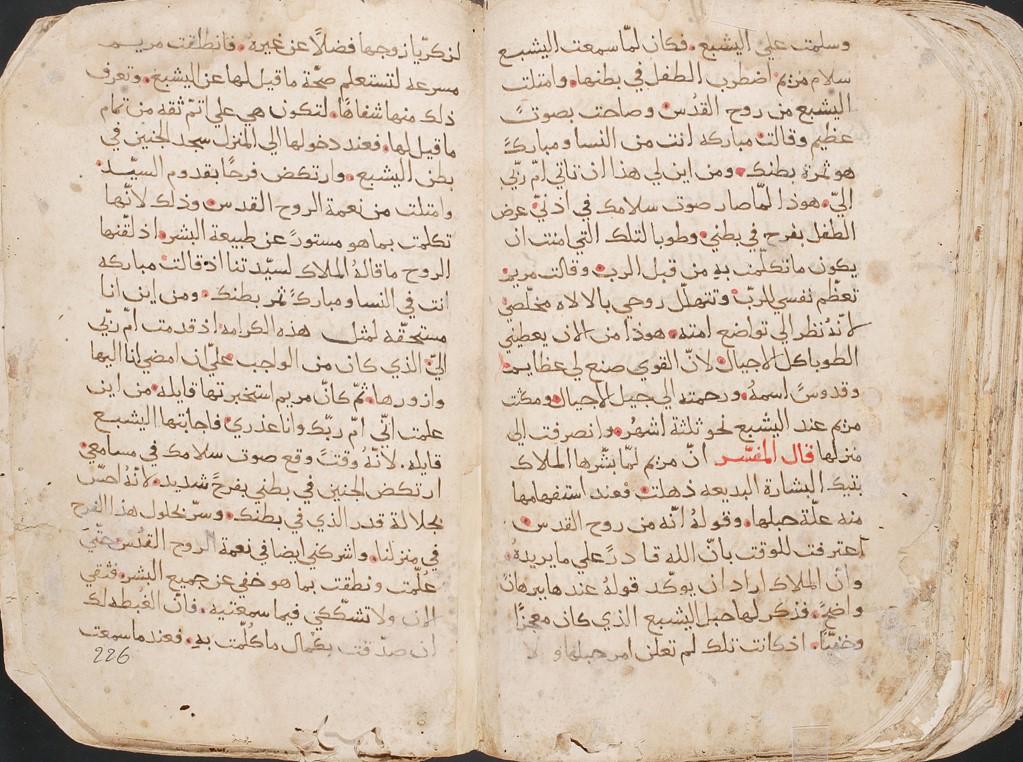 وسلمت علي اليشبع. فكان لمّا سمعت اليشبع
سلام مريم اضطرب الطفل في بطنها. وامتلت
اليشبع من روح القدس. وصاحت بصوتً
عظيم وقالت مباركه انت من النسا ومباركةً
هو ثمرة بطنك. ومن اين لي هذا ان تاتي امّ ربّي
اليّ. هوذا لمّا صار صوت سلامك في اذنيّ عرض
الطفل بفرح في بطني. وطوبا لتلك التي امنت ان
يكون ما تكلّمت به من قبل الرب. وقالت مريم
تعظّم نفسي للربّ وتتهلّل روحي بالالاه مخلّصي
لانّه نظر الي تواضع امته. هوذا من الان يعطيني
الطوبا كل الاجيال. لانّ القوي صنع لي عظايما
وقدوسً اسمه. ورحمته الي جيل الاجيال. ومكثت
مريم عند اليشبع نحو ثلثة اشهر. وانصرفت الي
منزلها قال المفسّر انّ مريم لمّا بشّرها الملاك
بتيك البشارة البديعه ذهلت. فعند استفهامها
منه علّة حبلها. وقوله انّه من روح القدس.
اعترفت للوقت بانّ الله قادرً علي ما يريده.
وانّ الملاك اراد ان يوكّد قوله عندها ببرهان
واضحً. فذكر لها حبل اليشبع الذي كان معجزًا
وخفيّا. اذ كانت تلك لم تعلن امر حبلها ولا
لزكريّا زوجها فضلاً عن غيره. فانطلقت مريم
مسرعه لتستعلم صحّة ما قيل لها عن اليشبع. وتعرف
ذلك منها شفاهًا. لتكون هي علي اتمّ ثقه من تمام
ما قيل لها. فعند دخولها الي المنزل سجد الجنين في
بطن اليشبع. وارتكض فرحًا بقدوم السيّد
وامتلت من نعمة الروح القدس. وذلك لانّها
تكلمت بما هو مستورً عن طبيعة البشر. اذ لقّنها
الروح ما قاله الملاك لسيّدتنا اذ قالت مباركه
انت في النسا ومباركةً ثمر بطنك. ومن اين انا
مستحقّه لمثل هذه الكرامه. اذ قدمت امّ ربّي
اليّ الذي كان من الواجب عليّ ان امضي انا اليها
وازورها. ثمّ كانّ مريم استخبرتها قايله. من اين
علمت انّي امّ ربّك وانا عذري. فاجابتها اليشبع
قايله. لانّه وقتً وقع صوت سلامك في مسامعي
ارتكض الجنين في بطني بفرحً شديد. لانّه احسّ
بجلالة قدر الذي في بطنك. وسرّ بحلول هذا الفرح
في منزلنا. واشركني ايضا في نعمة الروح القدس. حتّي
علمت ونطقت بما هو خفي عن جميع البشر. فثقي
الان ولا تشكّكي فيما سمعتيه. فانّ الغبطه لك
ان صدّقت بكمال ما كلّمت به. فعندما سمعت
226